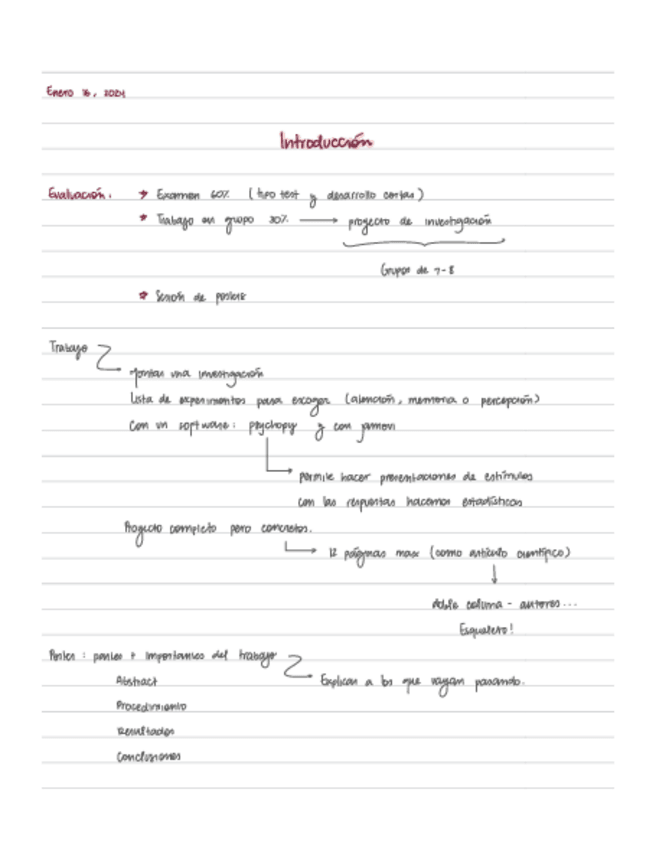 Enero 16, 2024
Introducción
Evaluación. * Examen 60% (tipo test y desarrollo cortas)
* Trabajo en grupo 30% → proyecto de investigación
Grupos de 7-8
* Sesión de posters
Trabajo
Montar una investigación
Lista de experimentos para escoger (atención, memoria o percepción)
Con un software: psychopy y con jamovi
permite hacer presentaciones de estímulos
con las respuestas hacemos estadísticos
Proyecto completo pero concretos.
12 páginas max (como artículo científico)
doble columa - autores...
Esqueleto!
: partes + importantes del trabajo
Explican a los que vayan pasando.
Abstract
Procedimiento
Resultados
Conclusiones